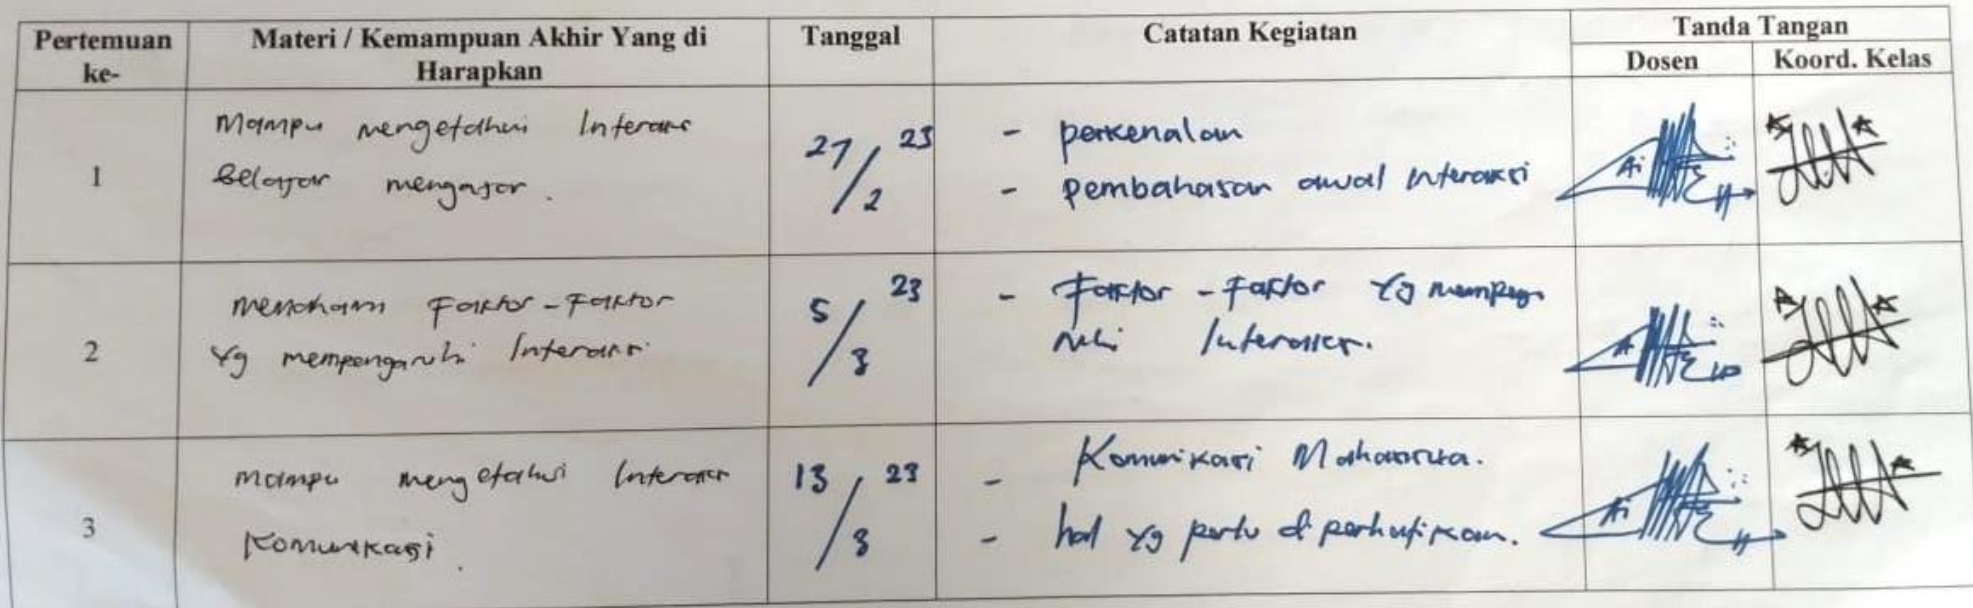 Pertemuan ke-
Materi / Kemampuan Akhir Yang di Harapkan
Tanggal
Catatan Kegiatan
Tanda Tangan
Dosen
Koord. Kelas
1
Mampu mengetahui Interaksi
Belajar mengajar.
27/2 23
- perkenalan
- pembahasan awal interaksi
2
memahami Faktor-Faktor
Yg mempengaruhi Interaksi
5/3 23
- Faktor - Faktor Yg mempeng
ruhi Interaksi.
3
mampu mengetahui Interaksi
Komunikasi.
13/3 23
- Komunikasi Mahasiswa.
- hal Yg perlu diperhatikan.